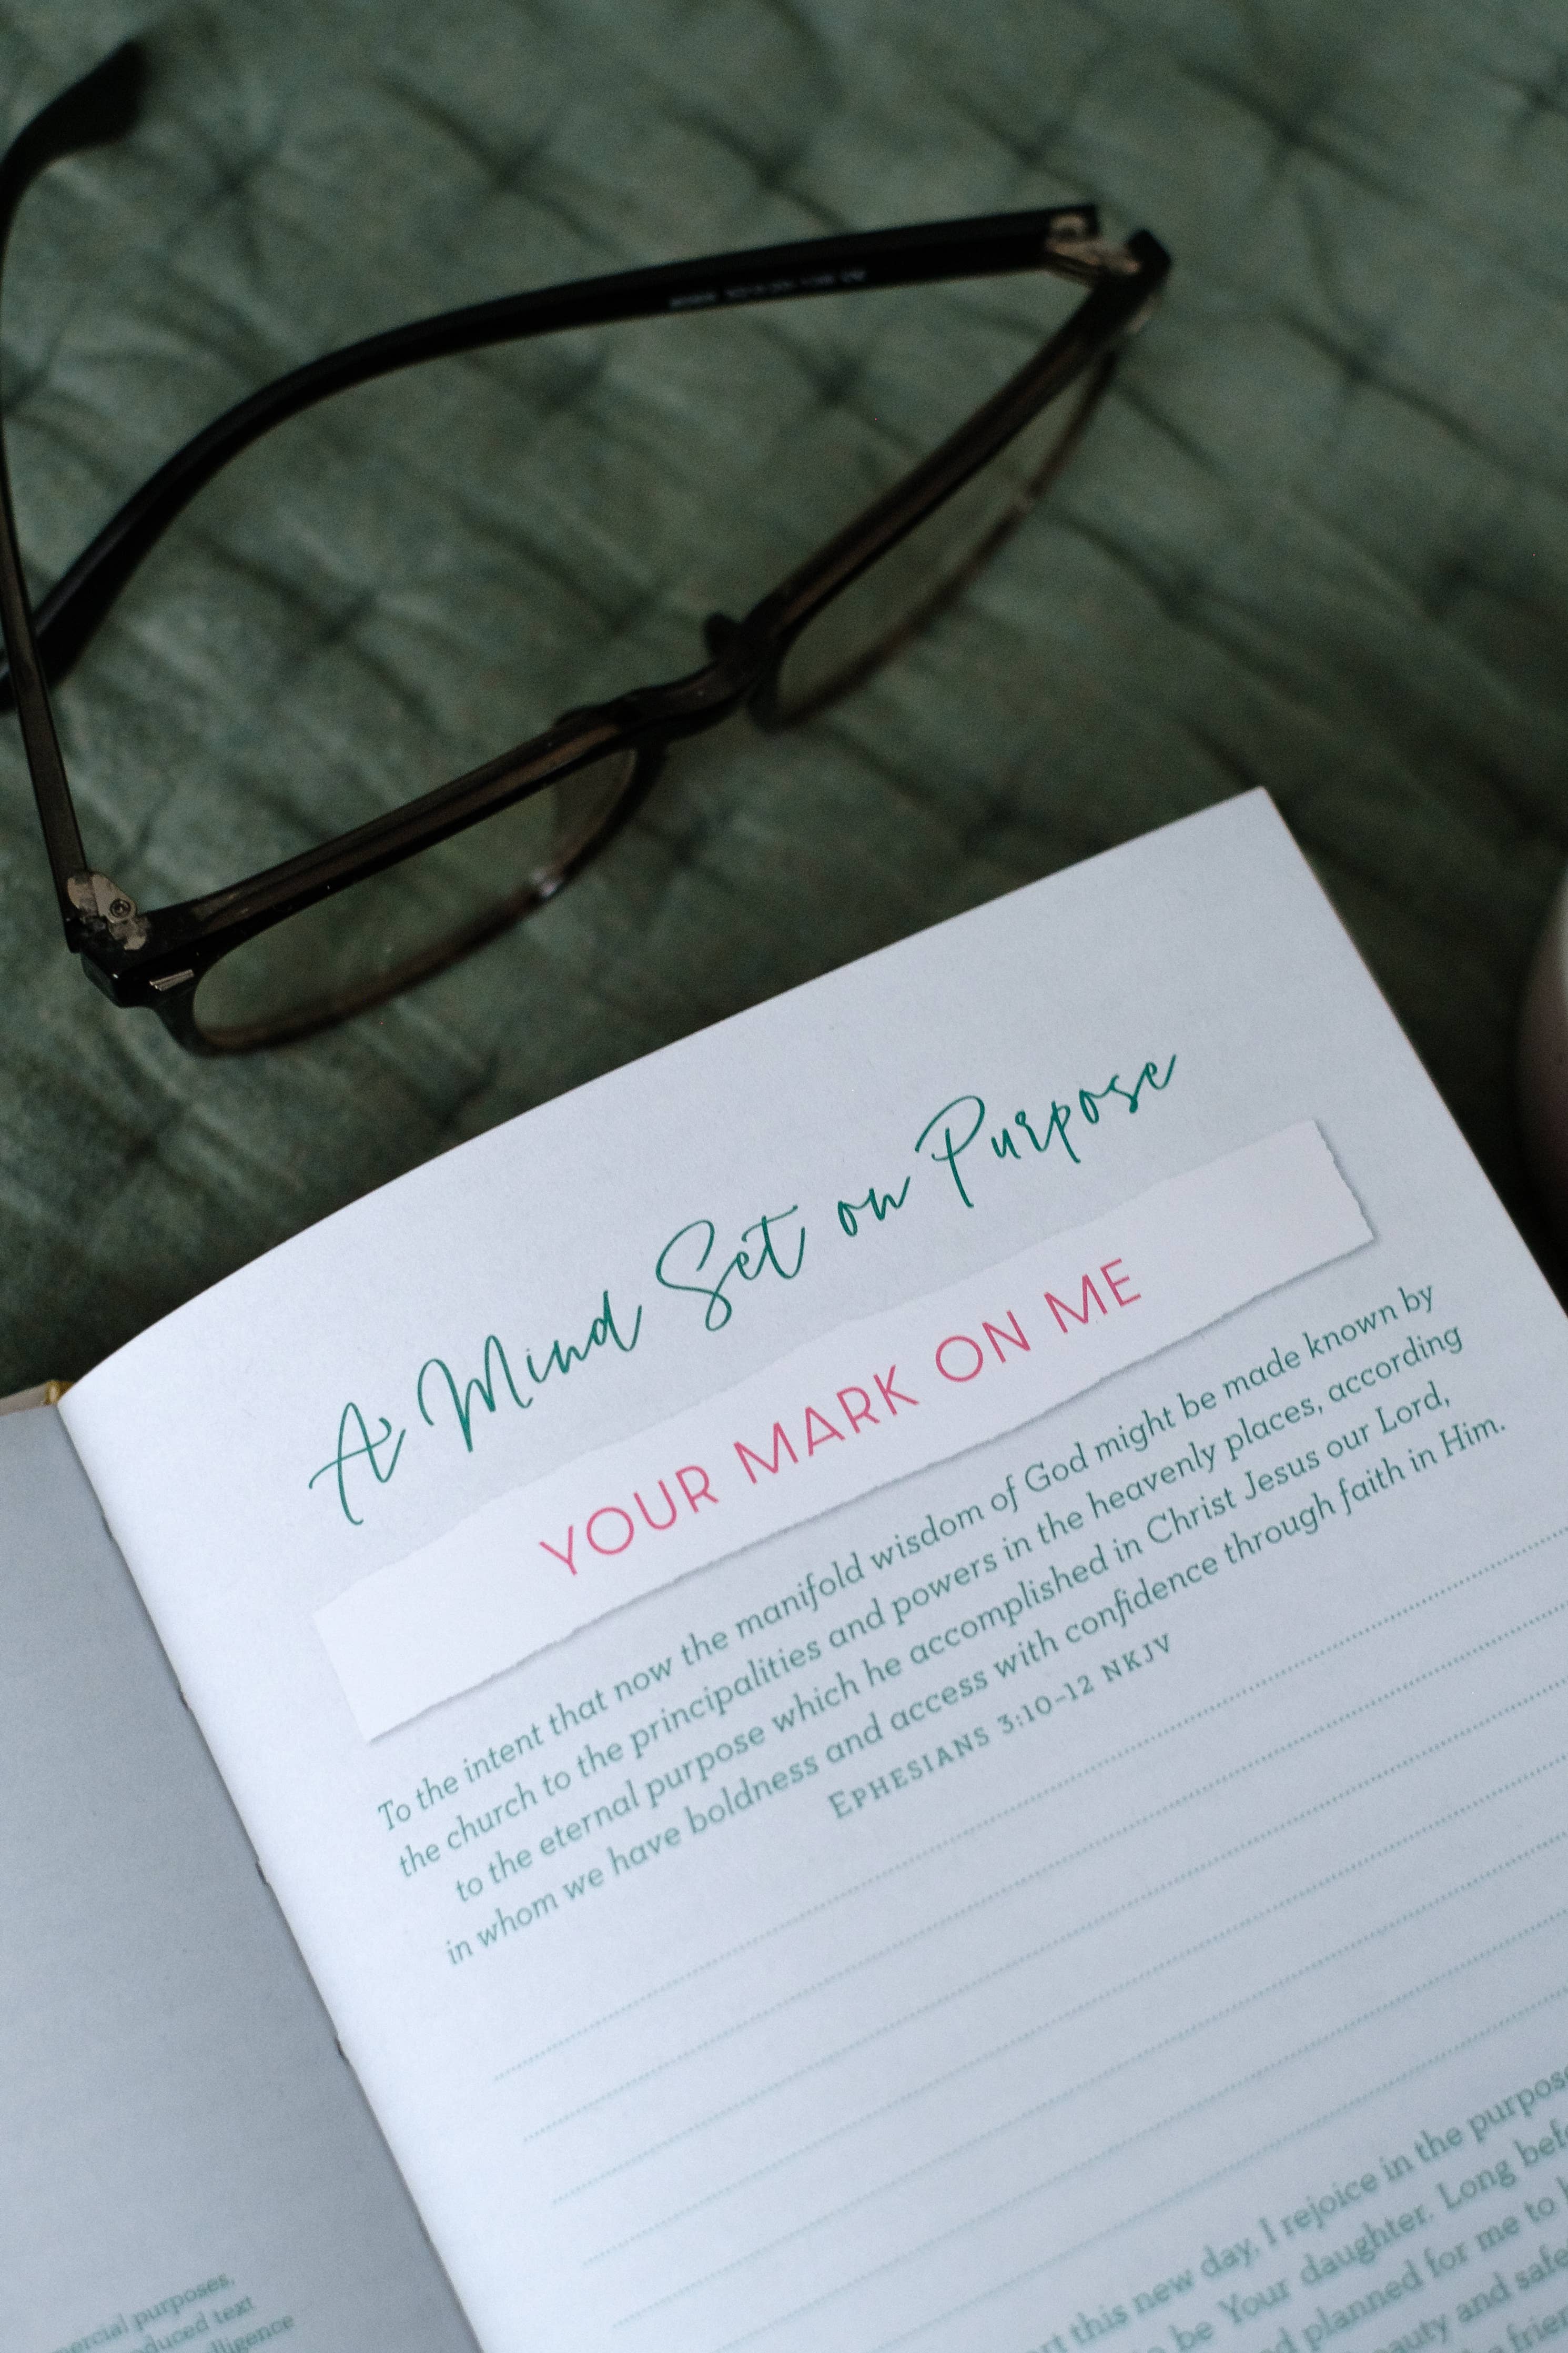 A Mind Set on Purpose
YOUR MARK ON ME
To the intent that now the manifold wisdom of God might be made known by
the church to the principalities and powers in the heavenly places, according
to the eternal purpose which he accomplished in Christ Jesus our Lord,
in whom we have boldness and access with confidence through faith in Him.
EPHESIANS 3:10–12 NKJV
this new day, I rejoice in the purpose
be Your daughter. Long
planned for me to
and
purposes,
text